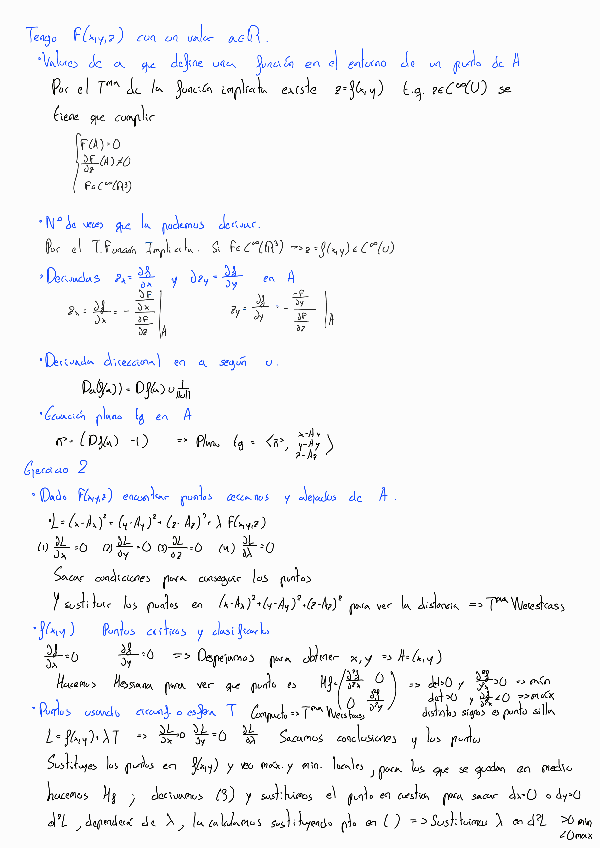 Tengo F(x,y,z) con un valor a∈ℝ.
•Valores de a que define una función en el entorno de un punto de A
Por el Tᵐᵃ de la función implícita existe z=f(x,y) t.q. z∈C^∞(U) se
tiene que cumplir
{ F(A)=0
∂F/∂z (A)≠0
F∈C^∞(ℝ³)
•Nº de veces que la podemos derivar.
Por el T.Función Implícita. Si F∈C^∞(ℝ³) => z=f(x,y)∈C^∞(U)
•Derivadas zx=∂f/∂x y ∂zy=∂f/∂y en A
zx = ∂f/∂x = - (∂F/∂x)/(∂F/∂z) |A zy = ∂f/∂y = - (-F/∂y)/(∂F/∂z) |A
•Derivada direccional en a según u.
Du(f(a)) = Df(a) u 1/||u||
•Ecuación plano tg en A
n = (Df(a) -1) => Plano tg = <n, x-Ax y-Ay z-Az>
Ejercicio 2
•Dado F(x,y,z) encontrar puntos cercanos y alejados de A.
•L=(x-Ax)²+(y-Ay)²+(z-Az)²+λ F(x,y,z)
(1) ∂L/∂x=0 (2) ∂L/∂y=0 (3) ∂L/∂z=0 (4) ∂L/∂λ=0
Sacar condiciones para conseguir los puntos
Y sustituir los puntos en (x-Ax)²+(y-Ay)²+(z-Az)² para ver la distancia => Tᵐᵃ Weierstrass
•f(x,y) Puntos críticos y clasificarlos
∂f/∂x=0 ∂f/∂y=0 => Despejamos para obtener x,y => A=(x,y)
Hacemos Hessiana para ver que punto es Hf=(∂²f/∂²x 0 0 ∂²f/∂²y) => det>0 y >0 => min
det>0 y <0 => max
distintos signos es punto silla
•Puntos usando circunf. o esfera T Compacto => Tᵐᵃ Weierstrass
L=f(x,y)+λT => ∂L/∂x=0 ∂L/∂y=0 ∂L/∂λ Sacamos conclusiones y los puntos
Sustituyes los puntos en f(x,y) y veo máx. y min. locales, para los que se quedan en medio
hacemos Hf; derivamos (3) y sustituimos el punto en cuestión para sacar dx=0 o dy=0
d²L, dependerá de λ, la calculamos sustituyendo pto en ( ) => Sustituimos λ en d²L >0 min
<0 max